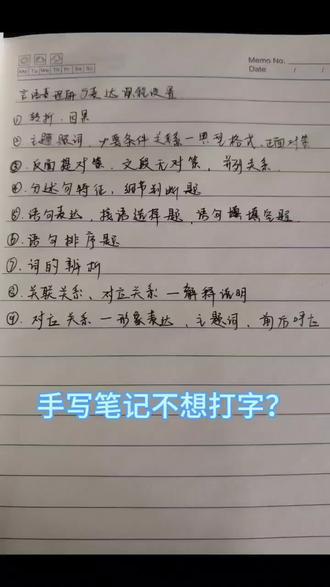 Memo No.
Mo Tu We Th Fr Sa Su
Date / /
言语理解与表达课程设置
① 转折、因果
② 主题服词、必要条件关系一典型格式、正面对策
③ 反面提对策、文段无对策、并列关系
④ 分述句特征,细节判断题
⑤ 语句表达,接语选择题、语句填空题
⑥ 语句排序题
⑦ 词的辨析
⑧ 关联关系、对应关系一解释说明
⑨ 对应关系一形象表达,主题词,前后呼应
手写笔记不想打字?